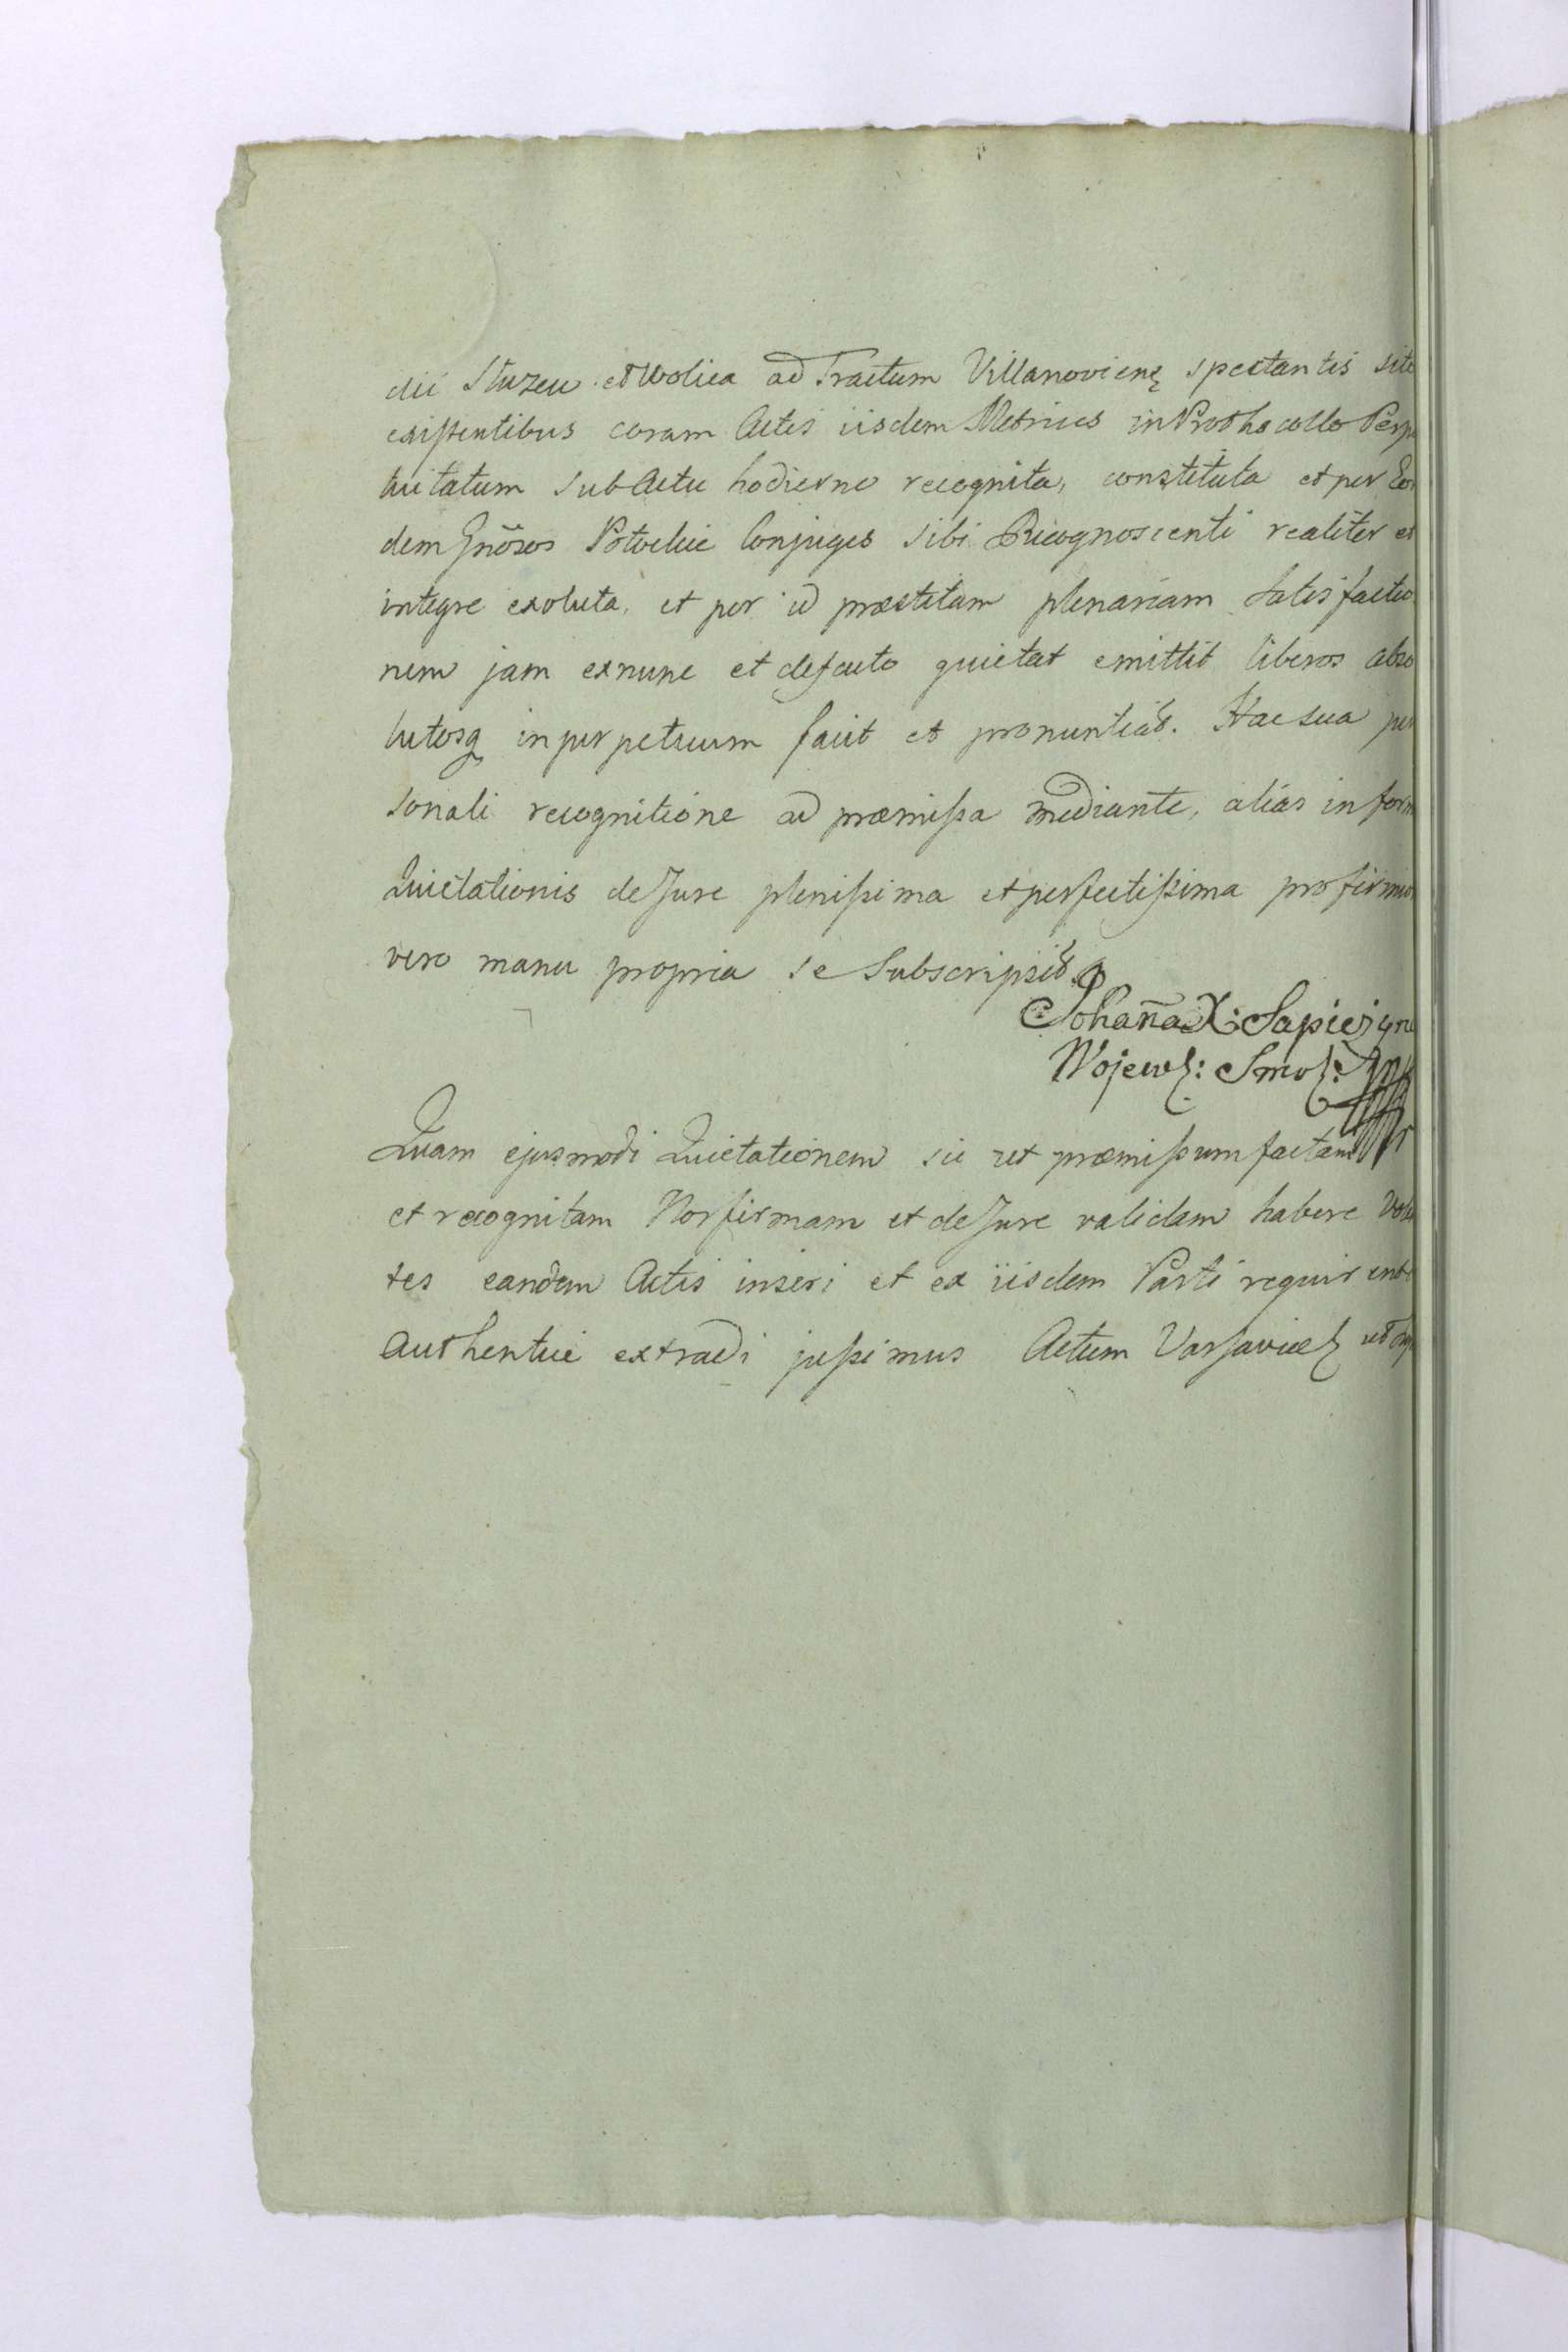 dii Sluzew et Wolica ad Tractum Villanovienę spectantis sit
existentibus coram Actis iisdem Metrices in Prothocollo Perp
tuitatum sub Actu hodierno recognita, constituta et per Eos
dem Gnõsos Potockie Conjuges sibi Recognoscenti realiter et
integre exoluta, et per id præstitam plenariam Satisfactio
nem jam exnunc et defacto quietat emittit liberos abso
lutosq inperpetuum facit et pronuntiat. Hac sua per
sonali recognitione ad præmissa mediante, alias in form
Quietationis de Jure plenissima et perfectissima pro firmio
vero manu propria se Subscripsit
Johaña X: Sapiezyna
Wojewz: Smolz:
Quam ejusmodi Quietationem sic ut præmissum factam
et recognitam Nos firmam et de Jure validam habere Vole
tes eandem Actis inseri et ex iisdem Parti requirenti
authentice extradi jussimus Actum Varsaviæ ut